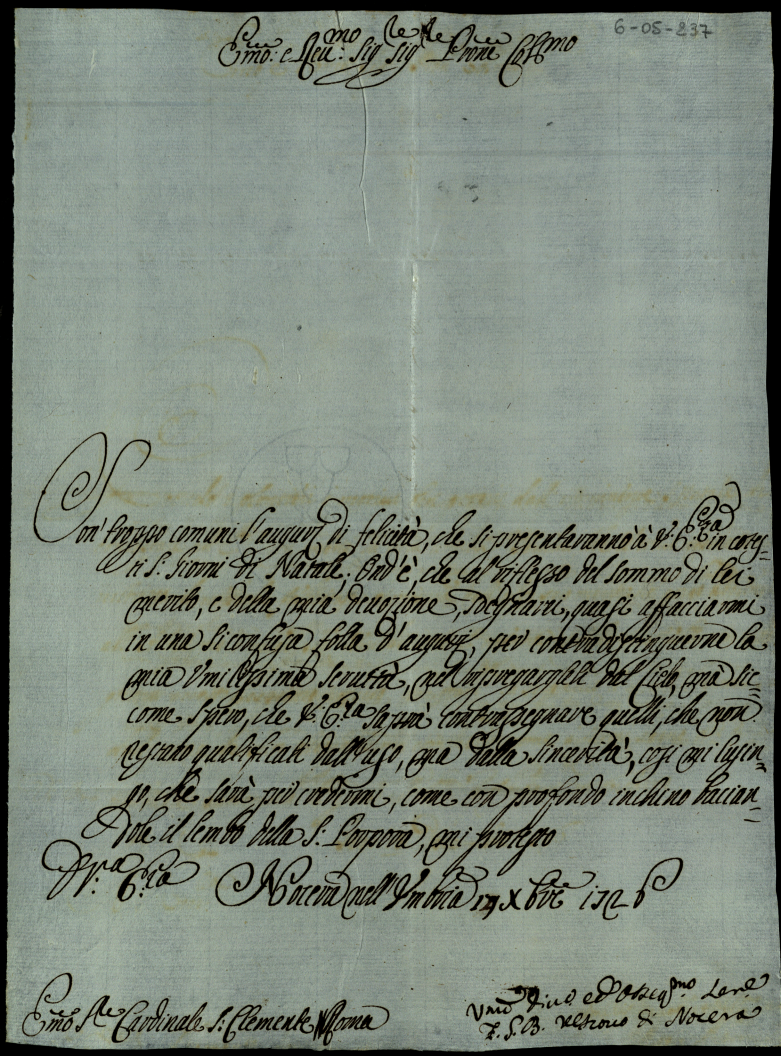 6-05-237
Em̃o: e Reu:mo Sig.re Sig.re Prone Colmo
Son' troppo comuni l'augurj di felicità, che si presentaranno à V.ra E.za in cotes=
ti S.ti Giorni di Natale; Ond'è, che al riflesso del sommo di lei
merito, e della mia devozione, sdegnarei, quasi affacciarmi
in una si confusa folla d'augurj, per contradistinguerne la
mia Vmilissima seruitù, nel impregargleli dal Cielo, mà sic=
come spero, che V.ra E.za saprà contrasegnare quelli, che non
restano qualificati dall'uso, ma dalla sincerità, cosi mi lusin=
go, che sarà per credermi, come con profondo inchino bacian=
dole il lembo della S. Porpora, mi protesto
D. V.ra E.za
Nocera nell'Vmbria 19 Xbre 1726
Em̃o S.re Cardinale S. Clemente Roma
Vmo Diuo ed Obligmo Sere
Vescouo di Nocera